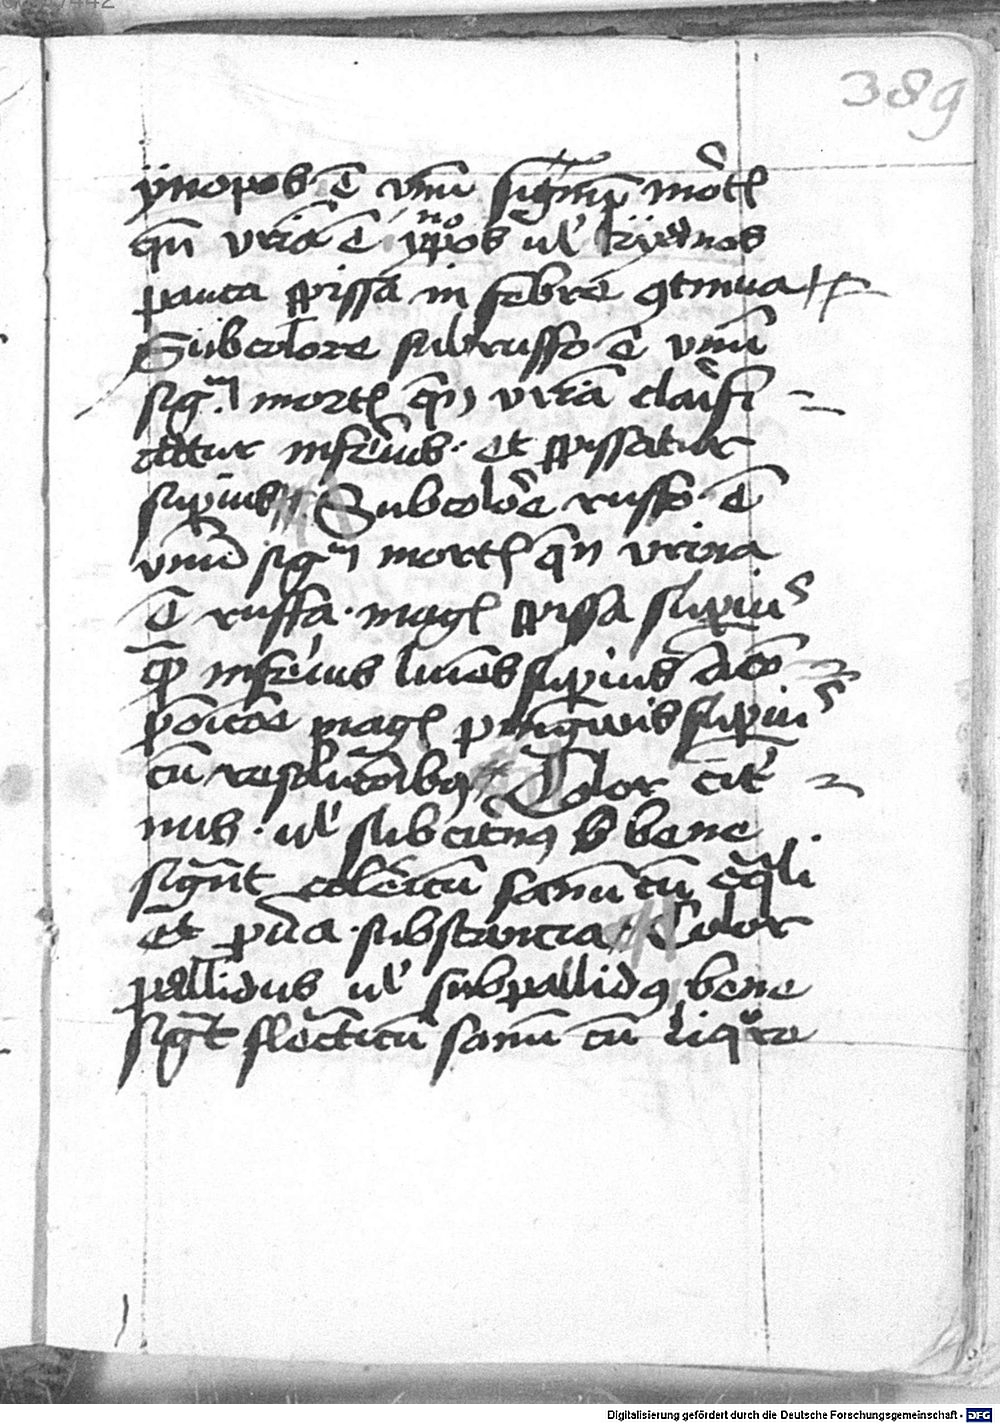 389
ynopos ē vnū signū mort
qn̄ vrīa ē ynopos ul' kyanos
pauca spissa in febre ɔtinua
Sub colore subrusso ē vnū
sigᵐ mort qn̄ vrīa clarifi
catur inferius · et spissatur
superius Sub colore russo ē
vnū sigᵐ mort qn̄ vrina
ē russa · mag spissa superiꝰ
inferius superius
mag pingwis superiꝰ
cū resolucōibꝫ Color citⁱ
nus · ul' subcitnꝰ bene
signt colericū sanū cū eq̄li
et substancia Color
pallidus ul' subpallidꝰ bene
sigt flecticū sanū cū liqore
Digitalisierung gefördert durch die Deutsche Forschungsgemeinschaft - DFG